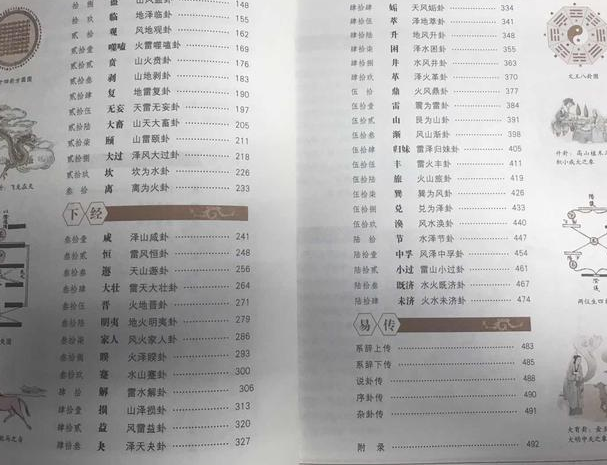 148
拾玖 临 地泽临卦 155
贰拾 观 风地观卦 162
贰拾壹 噬嗑 火雷噬嗑卦 169
贰拾贰 贲 山火贲卦 176
贰拾叁 剥 山地剥卦 183
贰拾肆 复 地雷复卦 190
贰拾伍 无妄 天雷无妄卦 197
贰拾陆 大畜 山天大畜卦 205
贰拾柒 颐 山雷颐卦 211
贰拾捌 大过 泽风大过卦 218
贰拾玖 坎 坎为水卦 226
叁拾 离 离为火卦 233
下经
叁拾壹 咸 泽山咸卦 241
叁拾贰 恒 雷风恒卦 248
叁拾叁 遯 天山遯卦 256
叁拾肆 大壮 雷天大壮卦 264
叁拾伍 晋 火地晋卦 271
叁拾陆 明夷 地火明夷卦 279
叁拾柒 家人 风火家人卦 286
叁拾捌 睽 火泽睽卦 293
叁拾玖 蹇 水山蹇卦 300
肆拾 解 雷水解卦 306
肆拾壹 损 山泽损卦 313
肆拾贰 益 风雷益卦 320
肆拾叁 夬 泽天夬卦 327
肆拾肆 姤 天风姤卦 334
肆拾伍 萃 泽地萃卦 341
肆拾陆 升 地风升卦 348
肆拾柒 困 泽水困卦 355
肆拾捌 井 水风井卦 363
肆拾玖 革 泽火革卦 370
伍拾 鼎 火风鼎卦 377
伍拾壹 雷 震为雷卦 384
伍拾贰 山 艮为山卦 391
伍拾叁 渐 风山渐卦 398
伍拾肆 归妹 雷泽归妹卦 405
伍拾伍 丰 雷火丰卦 411
伍拾陆 旅 火山旅卦 419
伍拾柒 巽 巽为风卦 426
伍拾捌 兑 兑为泽卦 433
伍拾玖 涣 风水涣卦 440
陆拾 节 水泽节卦 447
陆拾壹 中孚 风泽中孚卦 454
陆拾贰 小过 雷山小过卦 461
陆拾叁 既济 水火既济卦 467
陆拾肆 未济 火水未济卦 474
易传
系辞上传 483
系辞下传 485
说卦传 488
序卦传 490
杂卦传 491
附录 492
文王八卦图